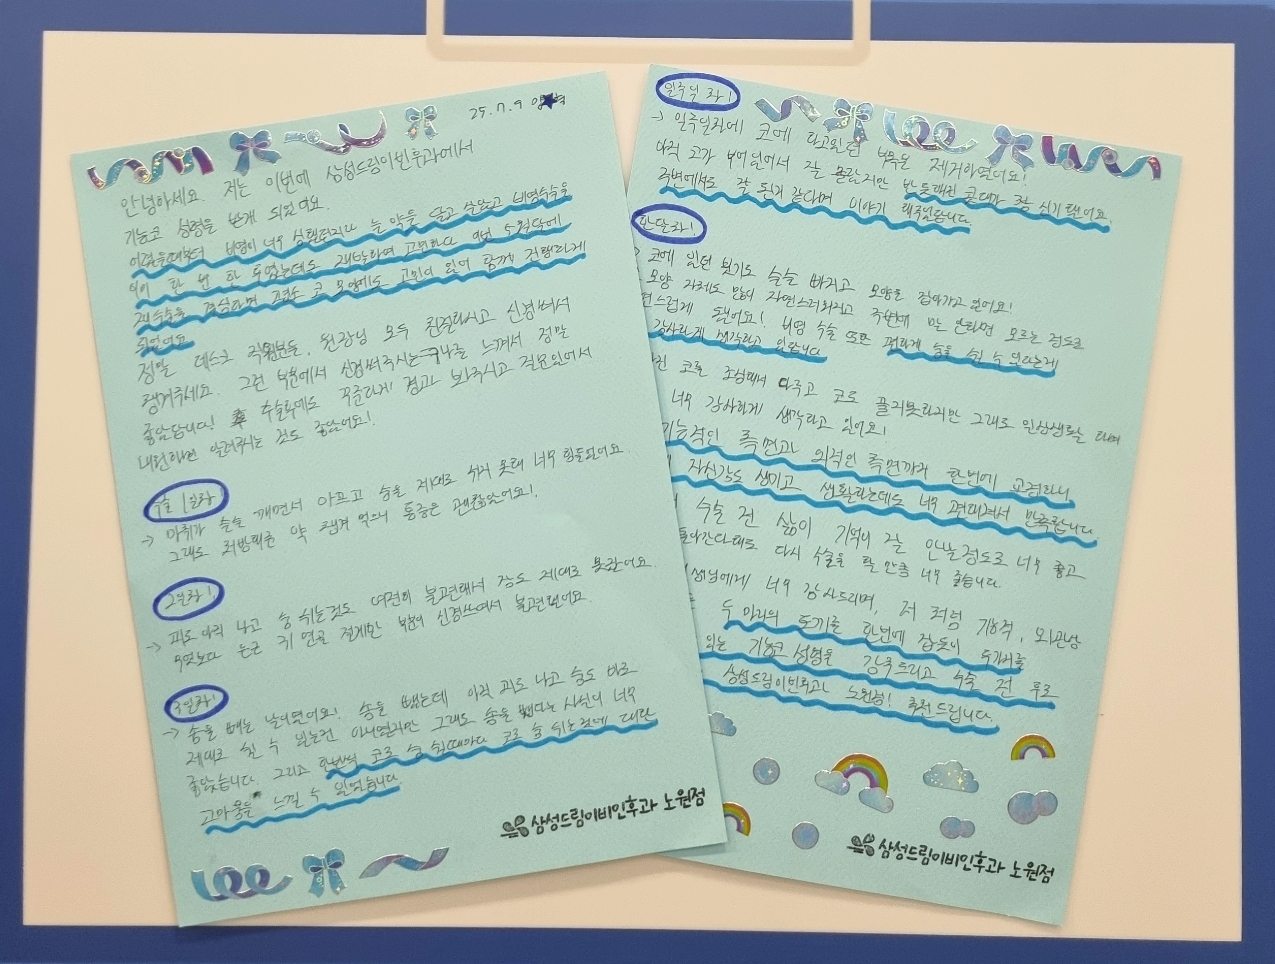 25.7.9
안녕하세요. 저는 이번에 삼성드림이비인후과에서
기능코 성형을 받게 되었어요.
어렸을때부터 비염이 너무 심했던지라 늘 약을 달고 살았고 비염수술을
이미 한 번 한 두었는데도 재발하여 고민하다 이번 5월달에
재수술을 결심하며 코 모양에도 고민이 있어 함께 진행하게
되었어요
정말 데스크 직원분들, 원장님 모두 친절하시고 신경써서
챙겨주세요. 그런 부분에서 신경써주시는구나를 느껴서 정말
좋았답니다! 수술후에도 꾸준하게 경과 봐주시고 적요있어서
내원하면 알려주시는 것도 좋았어요!
수술 1일차
→ 마취가 슬슬 깨면서 아프고 숨을 제대로 쉬지 못해 너무 힘들었어요
그래도 처방해준 약 챙겨 먹으니 통증은 괜찮았어요!
2일차!
→ 피도 아직 나고 숨 쉬는것도 여전히 불편해서 잠도 제대로 못잤어요.
무엇보다 은근 귀 연골 절제한 부분이 신경쓰여서 불편했어요
3일차!
→ 솜을 빼는 날이였어요! 솜을 뺐는데 아직 피도 나고 숨도 바로
제대로 쉴 수 있는건 아니였지만 그래도 솜을 뺐다는 사실이 너무
좋았습니다. 그리고 한번씩 코로 숨 쉬어질때마다 코로 숨 쉬는것에 대한
고마움을 느낄 수 있었습니다.
삼성드림이비인후과 노원점
일주일 차!
→ 일주일차에 코에 하고있던 부목을 제거하였어요!
아직 코가 부어있어서 잘 몰랐지만 반듯해진 콧대가 참 신기했어요.
주변에서도 잘 된거 같다며 이야기 해주었답니다
한달차!
코에 있던 붓기도 슬슬 빠지고 모양을 잡아가고 있어요!
모양 자체도 많이 자연스러워지고 주변에 말 안하면 모르는 정도로
됐어요! 비염 수술 또한 편하게 숨을 쉴 수 있다는게
감사하게 생각하고 있답니다
코를 조심해서 다루고 코도 풀지못하지만 그래도 일상생활을 하며
너무 감사하게 생각하고 있어요!
기능적인 측면과 외적인 측면까지 한번에 교정하니
자신감도 생기고 생활하는데도 너무 편해져서 만족합니다
수술 전 삶이 기억이 잘 안날정도로 너무 좋고
돌아간다해도 다시 수술을 할 만큼 너무 좋습니다.
너무 감사드리며, 저 처럼 기능적, 외관상
두 마리의 토끼를 한번에 잡듯이 두가지를
기능코 성형을 강추드리고 수술 전 후로
삼성드림이비인후과 노원점! 추천드립니다.
삼성드림이비인후과 노원점